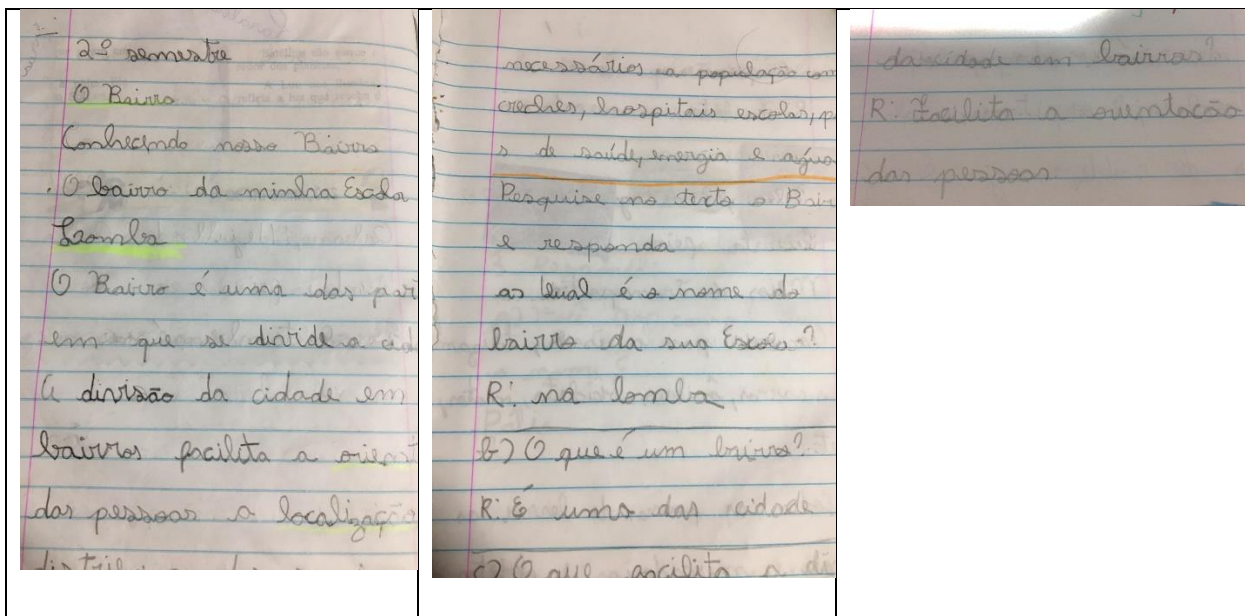 2º semestre
O Bairro
Conhecendo nosso Bairro
. O bairro da minha Escola
Lomba
O Bairro é uma das par
em que se divide a cid
A divisão da cidade em
bairros facilita a orient
das pessoas a localização
necessários a população com
creches, hospitais escolas, p
s de saúde, energia e agua
Pesquise no texto o Bair
e responda
a) Qual é o nome do
bairro da sua Escola?
R: na lomba
b) O que é um bairro?
R: É uma das cidade
c) O que facilita a di
da cidade em bairros?
R: Facilita a orientação
das pessoas